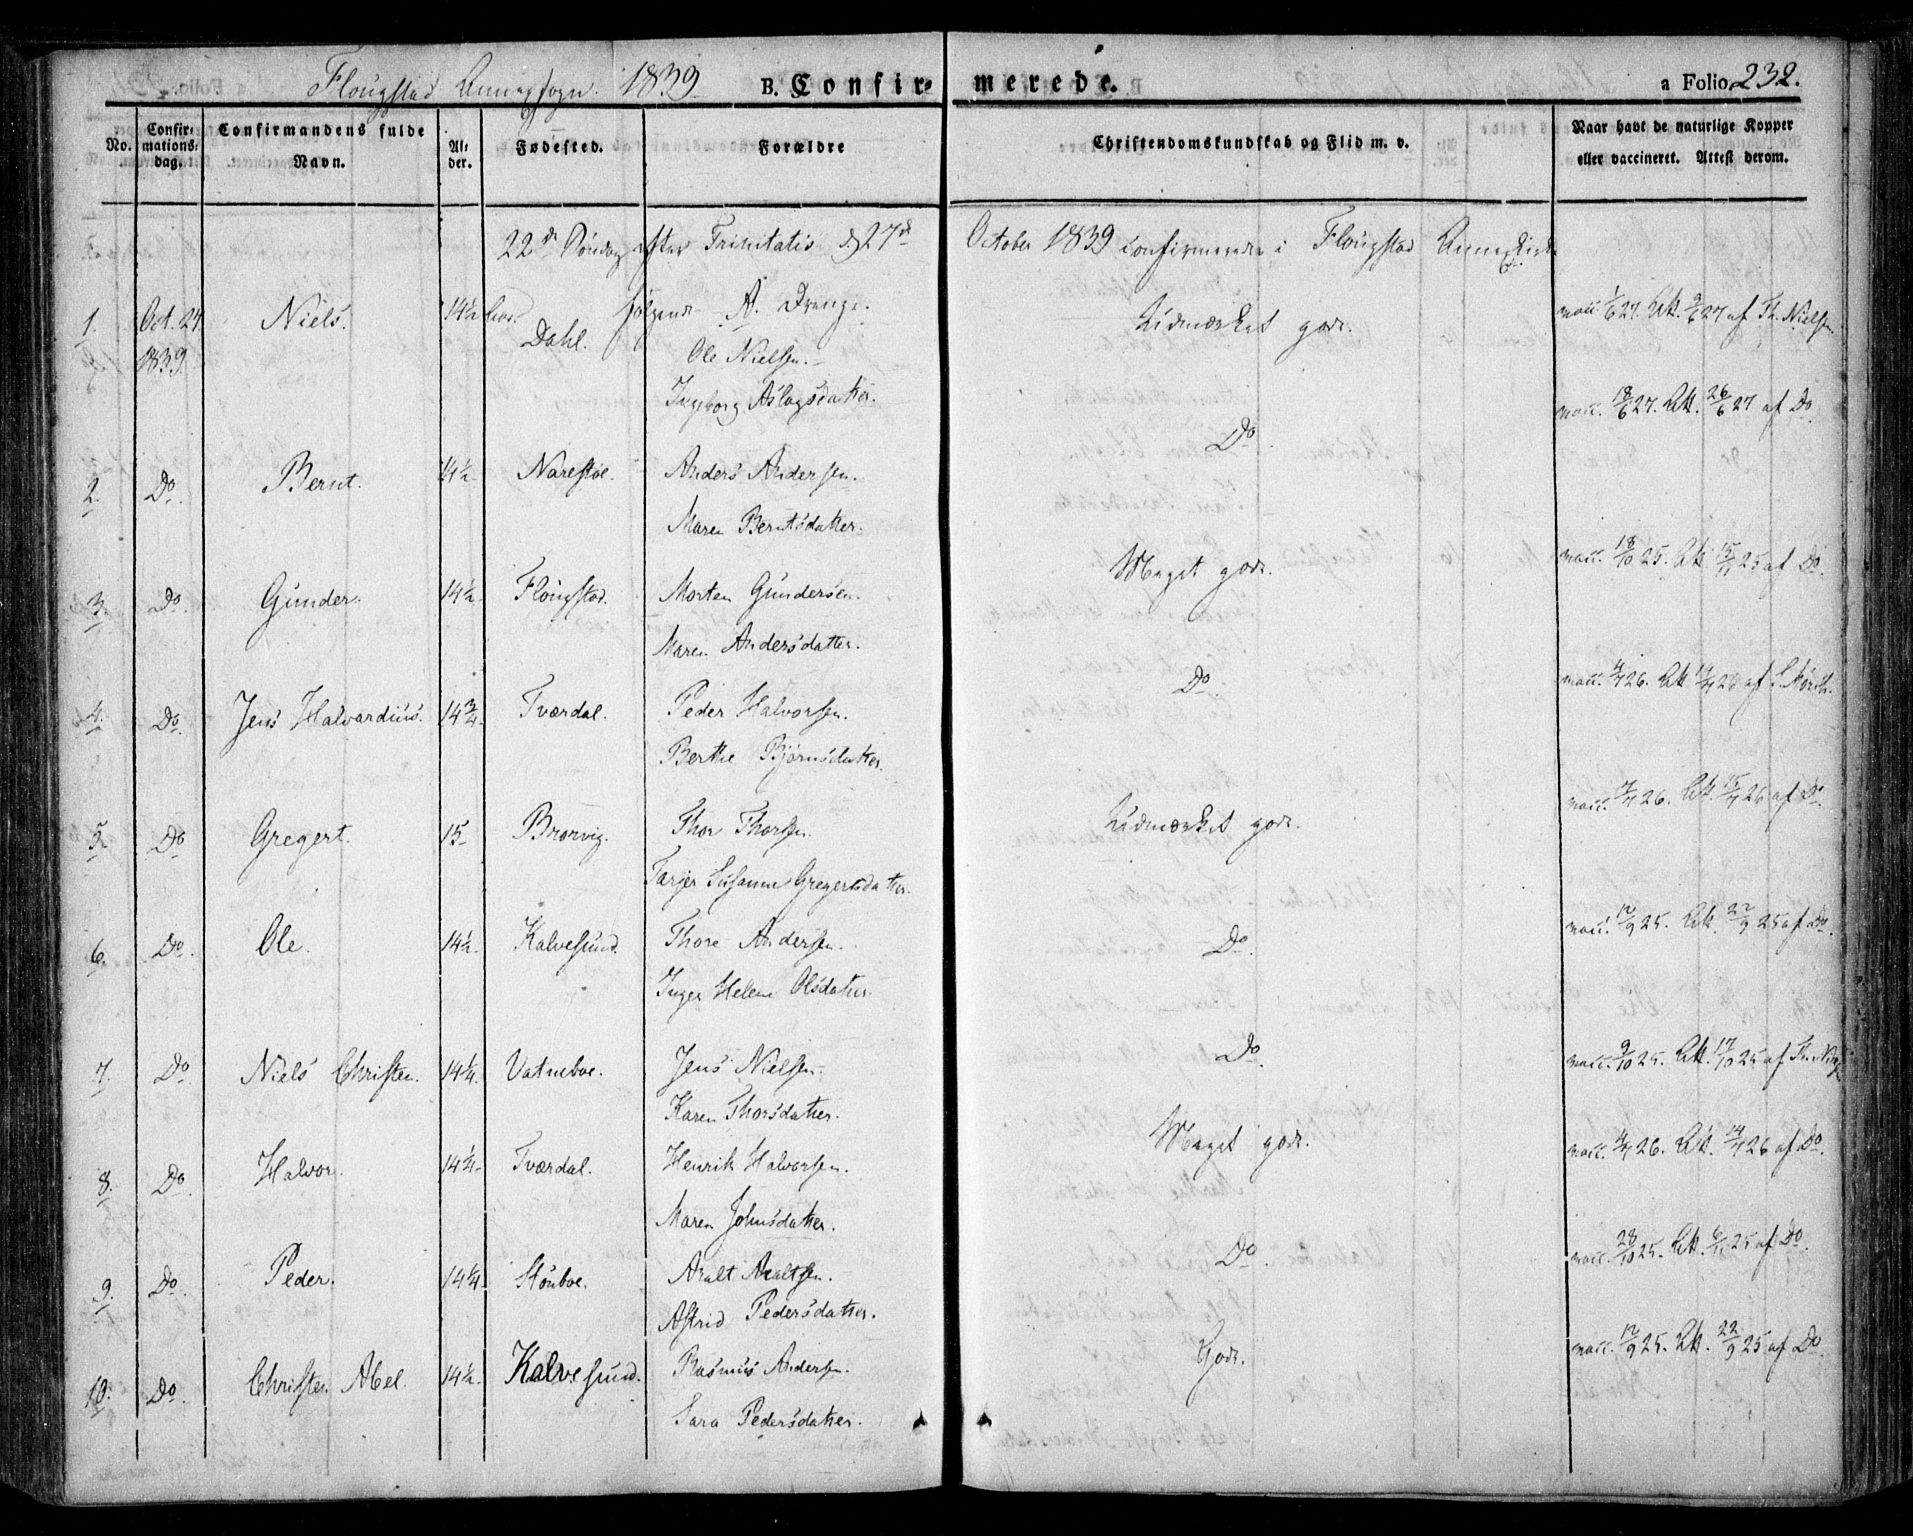 Flougstad Annexsogn. 1839 B. Confirmerede. a Folio 232.
No. Confirmations-dag. Confirmandens fulde Navn. Alder. Fødested. Forældre Christendomskundskab og Flid m. v. Naar havt de naturlige Kopper eller vaccineret. Attest derom.
22de Søndag efter Trinitatis d 27de October 1839 confirmerede i Flougstad Annexkirke
følgende A. Drenge.
1. Oct. 27 1839. Niels. 14½ Aar. Dahl. Ole Nielsen. Udmærket godt. vacc. 1/6 27. Att. 9/6 27 af Th. Nielsen
Ingeborg Aslagsdatter.
2. Do. Bernt. 14½ Narestøe. Anders Andersen. Do. vacc. 18/6 27. Att. 26/6 27 af Do
Maren Berntsdatter.
3. Do. Gunder. 14½ Flougstad. Morten Gundersen. Meget godt. vacc. 18/10 25. Att. 15/11 25 af Do.
Maren Andersdatter.
4. Do. Jens Halvardius. 14¾ Tværdal. Peder Halvorsen. Do. vacc. 4/7 26. Att. 26 af
Berthe Bjørnsdatter.
5. Do Gregert. 15 Brorvig. Thor Thorsen. Udmærket godt. vacc. 26. Att. 26 af Do
Tarjer Susanne Gregertsdatter.
6. Do. Ole. 14½ Kalvesund. Thore Andersen. Do. vacc. 12/9 25. Att. 22/9 25 af Do.
Inger Helene Olsdatter.
7. Do. Niels Christen. 14¼ Vatneboe. Jens Nielsen. Do. vacc. 9/10 25. Att. 17/10 25 af Th. Niels
Karen Thorsdatter.
8. Do. Halvor. 14¼ Tværdal. Henrik Halvorsen. Meget godt. vacc. 4/7 26. Att. 14/7 26 af Do.
Maren Johnsdatter.
9. Do. Peder. 14¼ Stouboe. Aralt Araltsen. Do. vacc. 28/10 25. Att. 6/11 25 af Do.
Astrid Pedersdatter.
10. Do. Christen Abel. 14½ Kalvesund. Rasmus Andersen. Godt. vacc. 12/9 25. Att. 22/9 25 af Do.
Sara Pedersdatter.